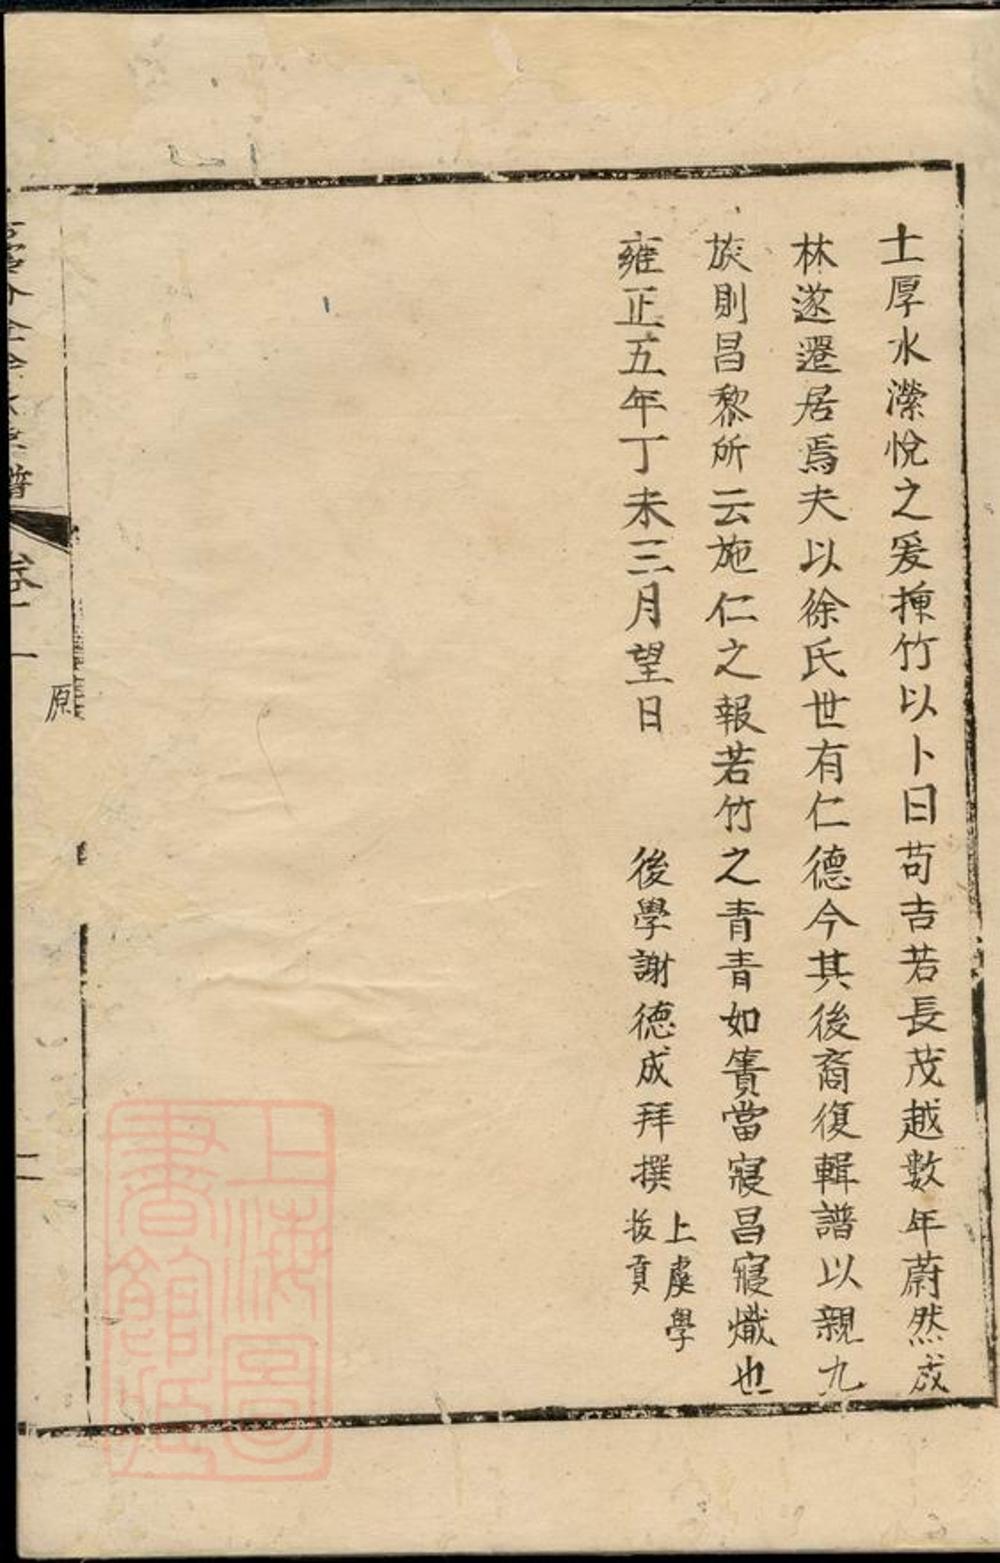 土厚水濴悅之爰揷竹以卜曰苟吉若長茂越數年蔚然成
林遂遷居焉夫以徐氏世有仁德今其後裔復輯譜以親九
族則昌黎所云施仁之報若竹之青青如簀當寖昌寖熾也
雍正五年丁未三月望日
後學謝德成拜撰
上虞學
拔貢
譜
卷一
原
二
上海圖
書館藏